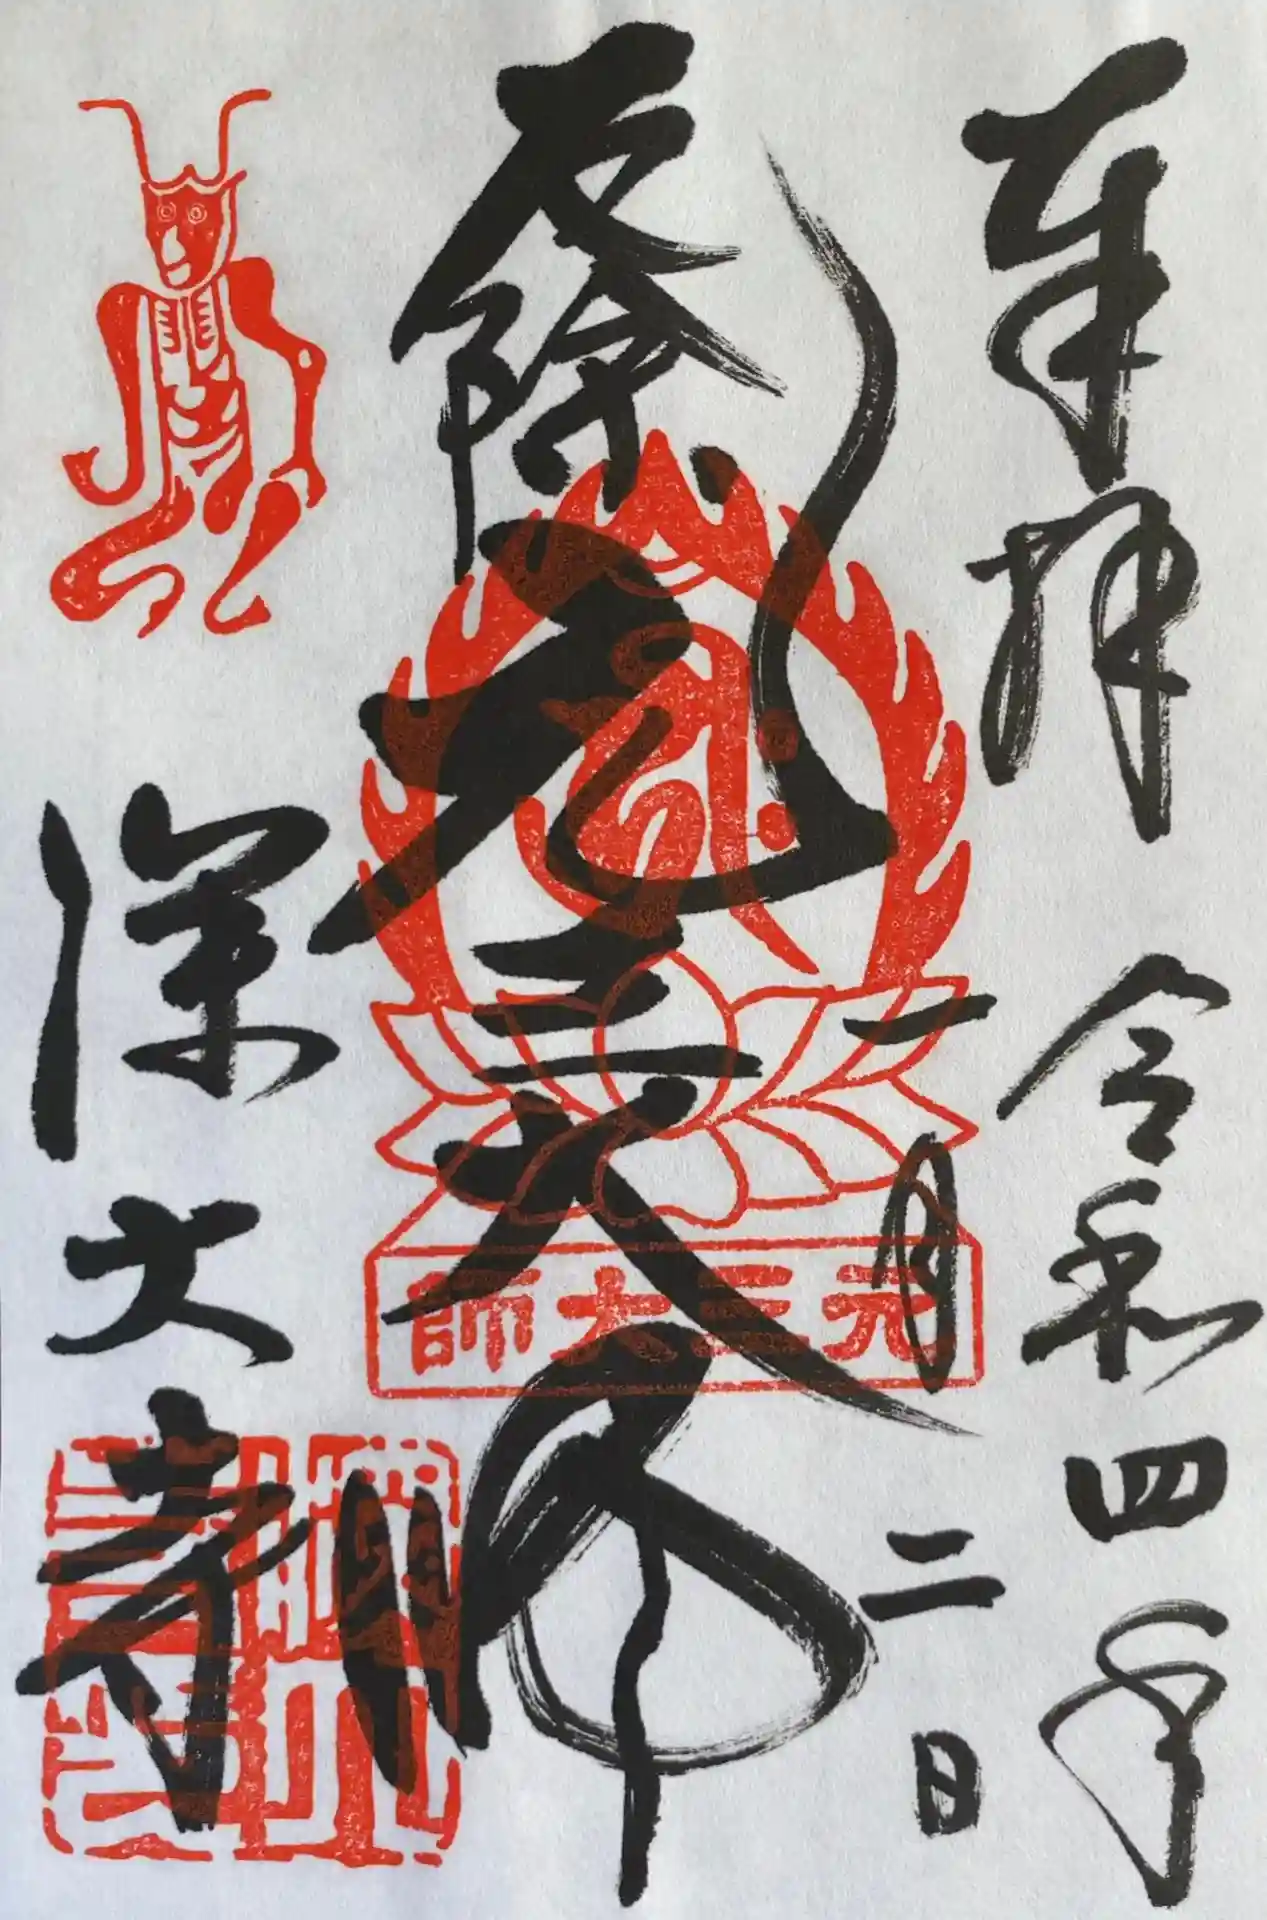 奉拝 令和四年
一月二日
厄除元三大師
元三大師
深大寺